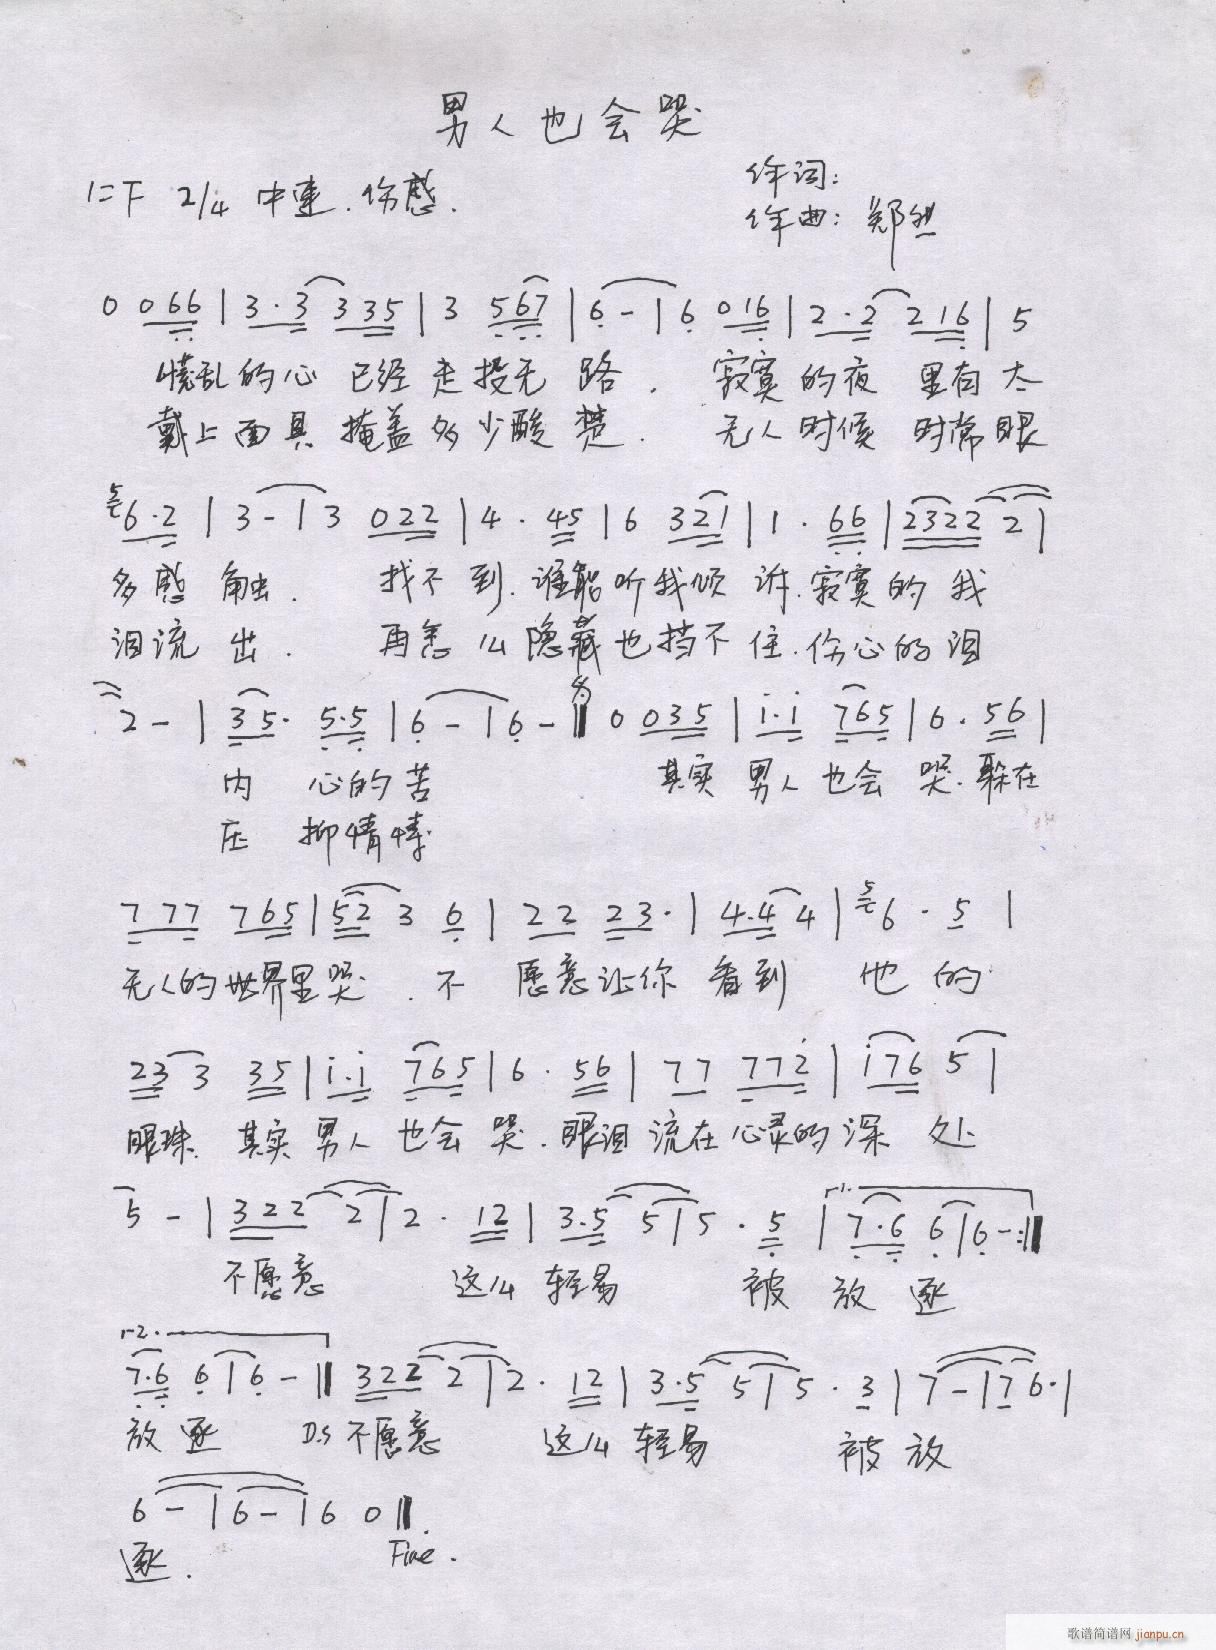 男人也会哭
1=F 2/4 中速.伤感.
作词:
作曲: 郑
0 066 | 3·3 335 | 3 567 | 6 - | 6 016 | 2·2 216 | 5
慌乱的心 已经 走投无 路. 寂寞的夜 里有太
戴上面具 掩盖 多少酸楚. 无人时候 时常眼
5 6·2 | 3 - | 3 022 | 4 · 45 | 6 321 | 1 · 66 | 2322 2 |
多感 触. 找不到.谁能听我倾诉.寂寞的我
泪流出. 再怎么隐藏也挡不住.伤心的泪
2 - | 35· 5·5 | 6 - | 6 - || 0 035 | i·i 765 | 6 · 56 |
内 心的苦 其实 男人也会哭.躲在
压 抑情
7 77 765 | 52 3 6 | 22 23· | 4·4 4 | 5 6 · 5 |
无人的世界里哭. 不 愿意让你 看到 他的
23 3 35 | i·i 765 | 6 · 56 | 77 772 | i76 5 |
眼珠. 其实 男人 也会哭.眼泪流在心灵的深处
5 - | 322 2 | 2 · 12 | 3·5 5 | 5 · 5 | 1. 7·6 6 | 6 - :||
不愿意 这么 轻易 被 放 逐
2. 7·6 6 | 6 - || 322 2 | 2 · 12 | 3·5 5 | 5 · 3 | 7 - | 7 6· |
放逐 D.S 不愿意 这么 轻易 被放
6 - | 6 - | 6 0 ||
逐. Fine.
歌谱简谱网 jianpu.cn